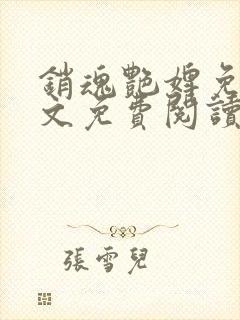 銷魂艷婢免
文免費閱讀
張雪兒